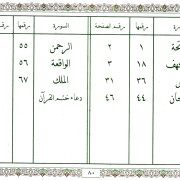 رقمها رقم الصفحة السورة رقمها
١ ٢ الرحمن ٥٥
١٨ ٣ الواقعة ٥٦
٣٦ ٣١ الملك ٦٧
٤٤ ٤٦ دعاء ختم القرآن
٨٠